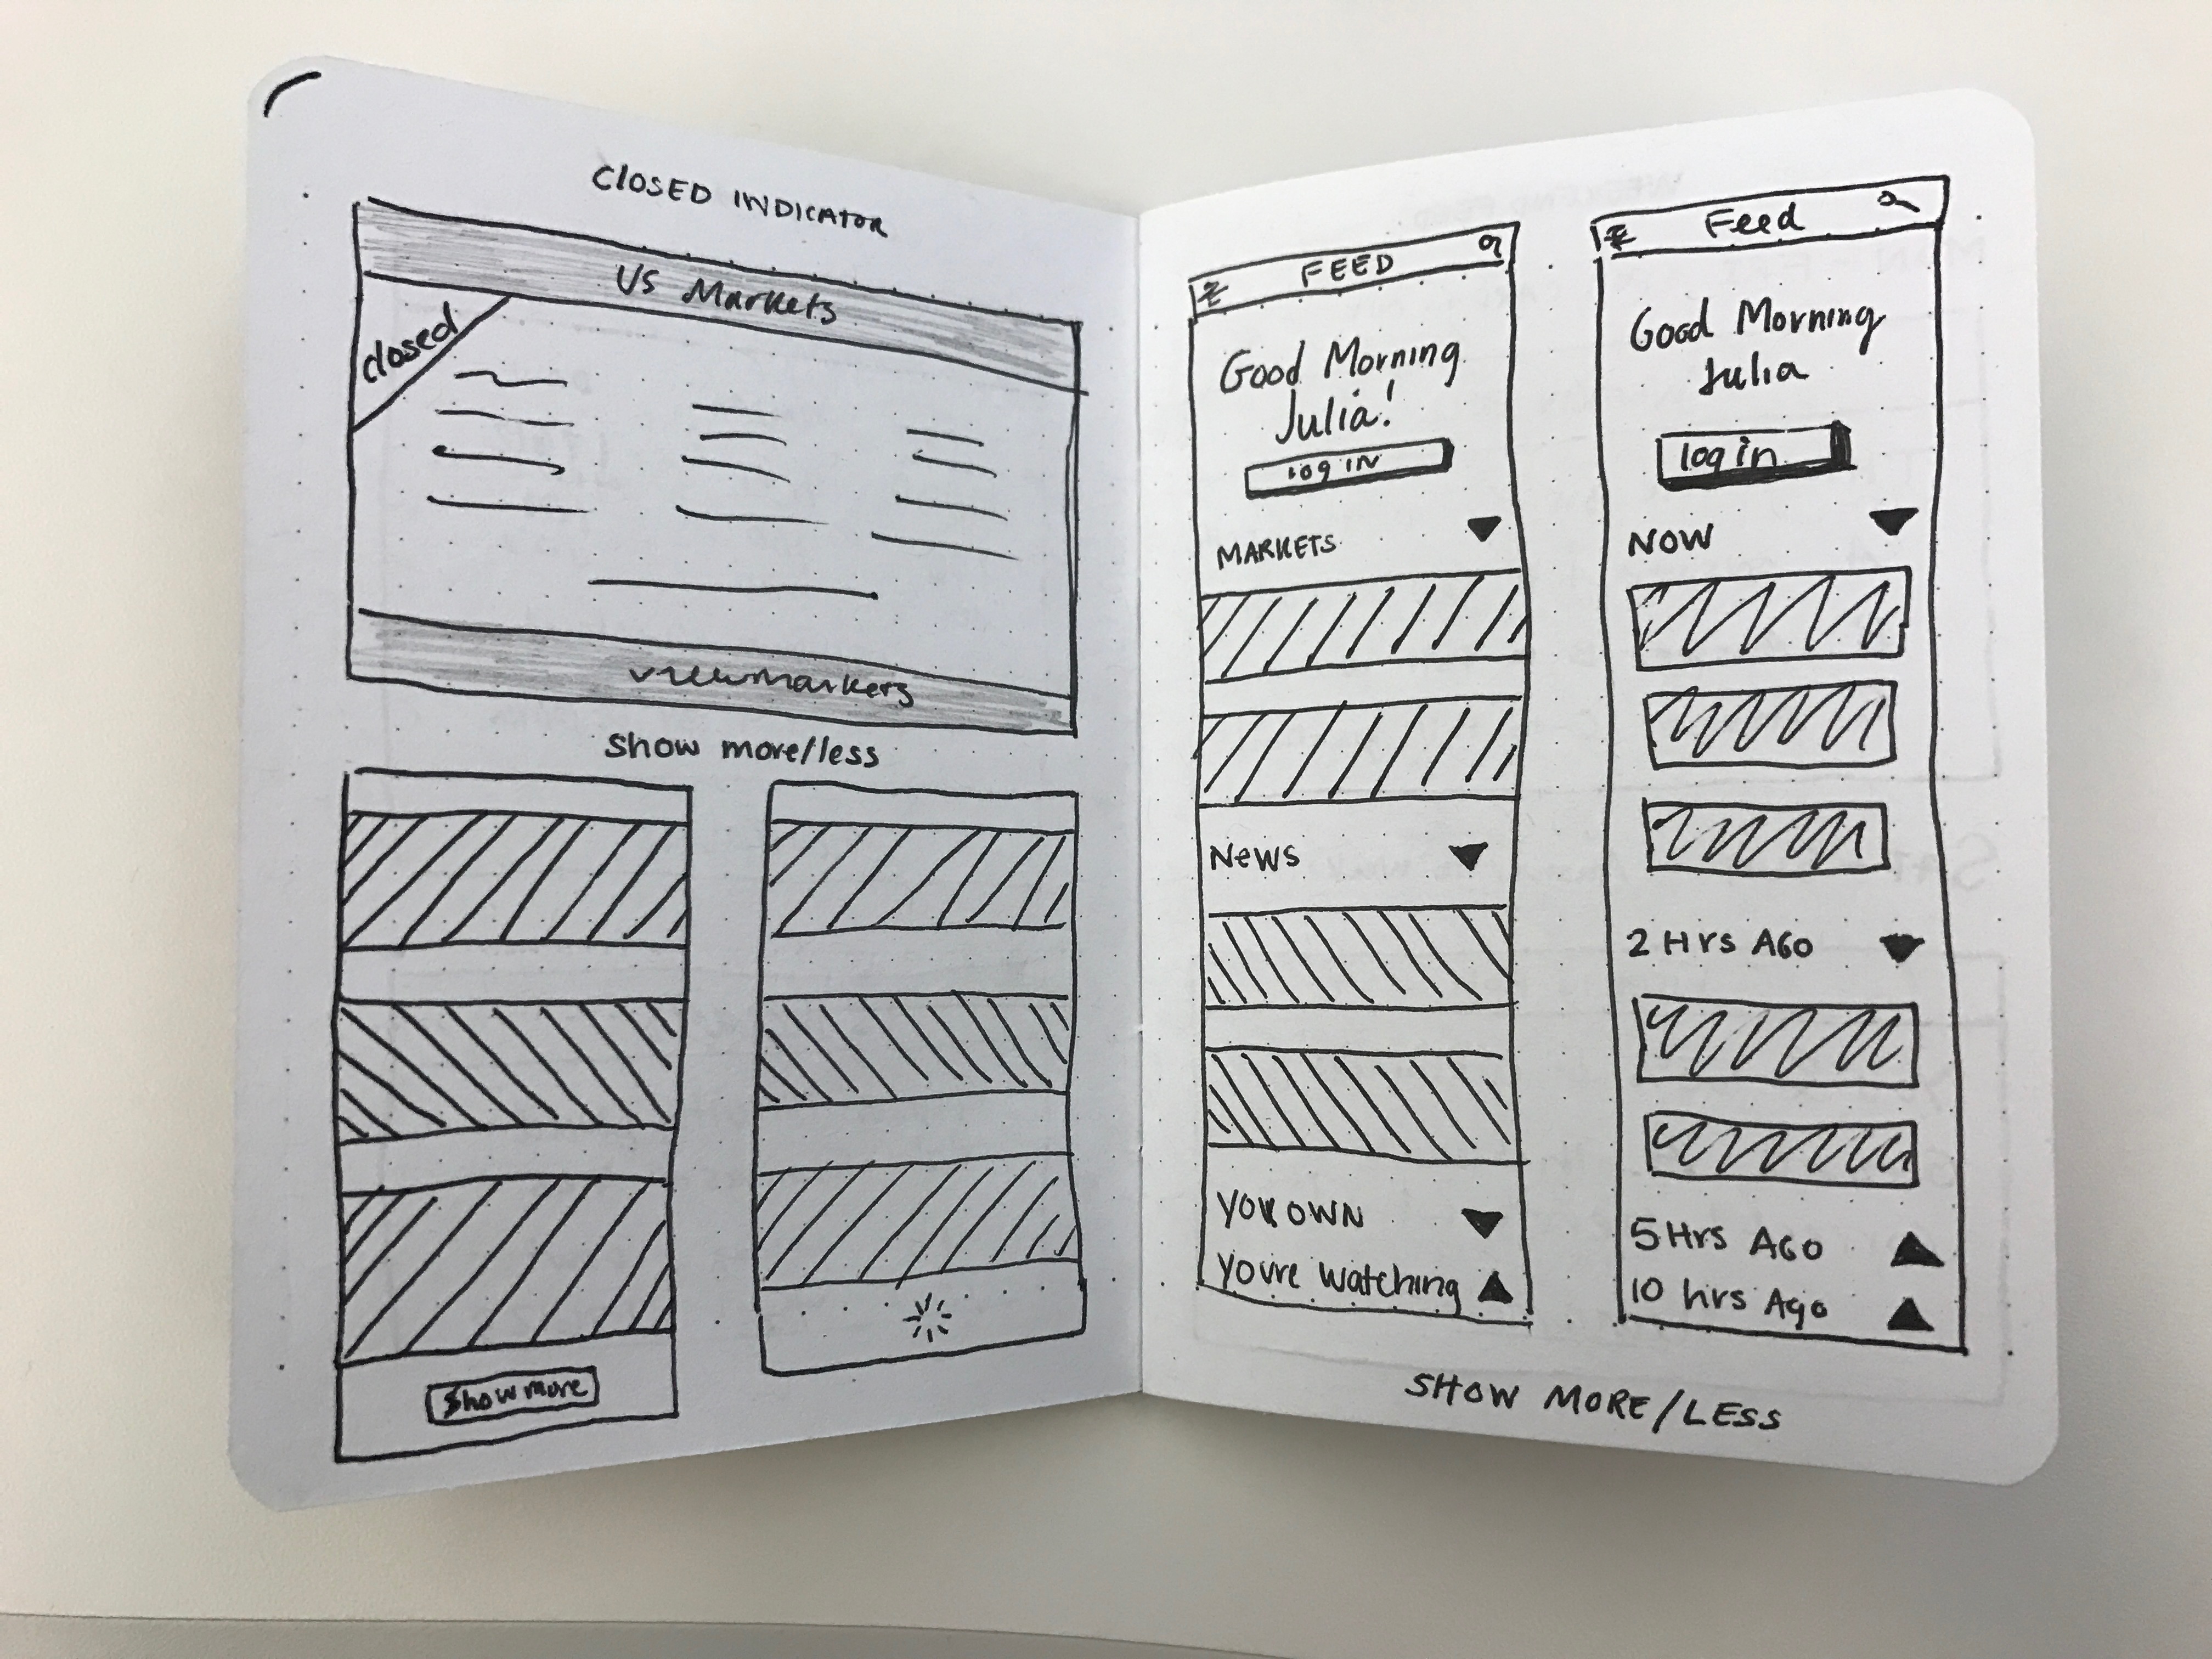 CLOSED INDICATOR
US Markets
closed
view markets
Show more/less
Show more
FEED
Good Morning
Julia!
LOG IN
MARKETS
News
YOU OWN
You're watching
Feed
Good Morning
Julia
log in
NOW
2 Hrs AGO
5 Hrs AGO
10 hrs Ago
SHOW MORE/LESS